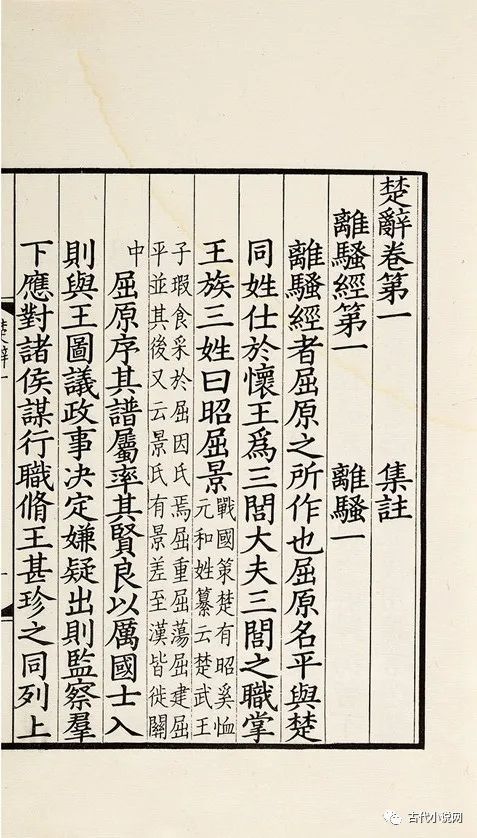 楚辭卷第一 集註
離騷經第一 離騷一
離騷經者屈原之所作也屈原名平與楚
同姓仕於懷王爲三閭大夫三閭之職掌
王族三姓曰昭屈景
戰國策楚有昭奚恤
元和姓纂云楚武王
子瑕食采於屈因氏焉屈重屈蕩屈建屈
平並其後又云景氏有景差至漢皆徙關
中 屈原序其譜屬率其賢良以厲國士入
則與王圖議政事决定嫌疑出則監察羣
下應對諸侯謀行職脩王甚珍之同列上
古代小说网